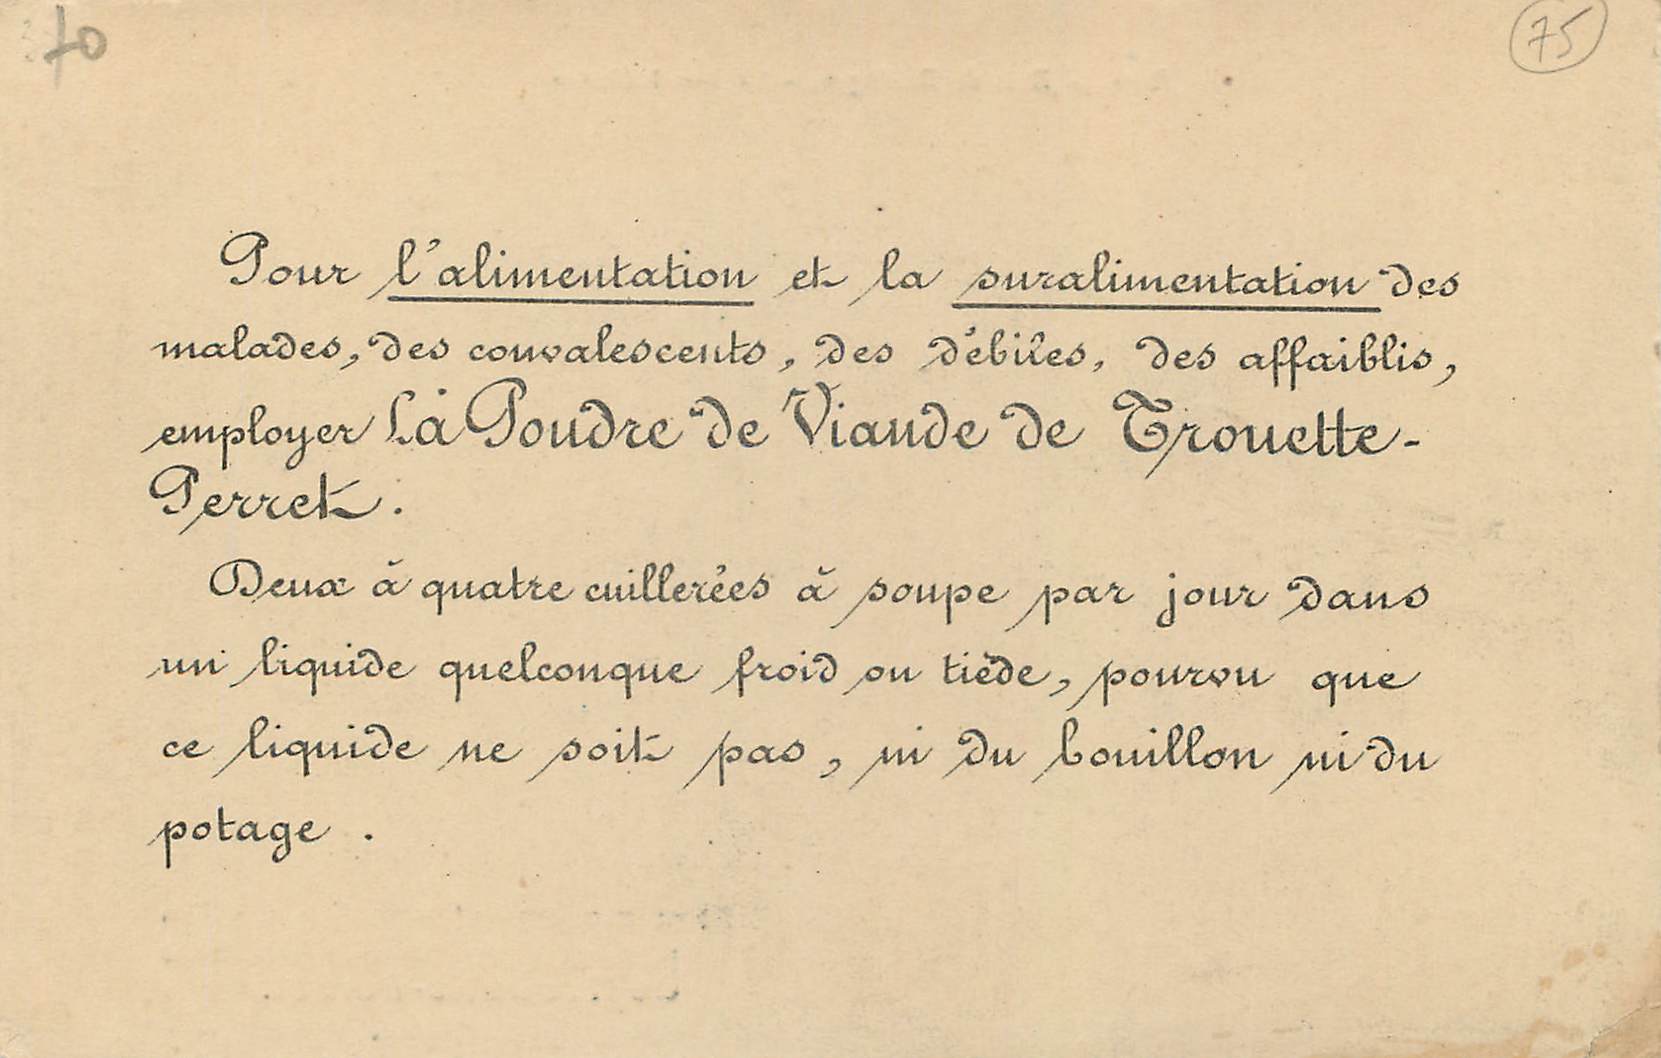 70
75
Pour l'alimentation et la suralimentation des
malades, des convalescents, des débiles, des affaiblis,
employer La Poudre de Viande de Trouette-
Perret.
Deux à quatre cuillerées à soupe par jour dans
un liquide quelconque froid ou tiède, pourvu que
ce liquide ne soit pas, ni du bouillon ni du
potage .